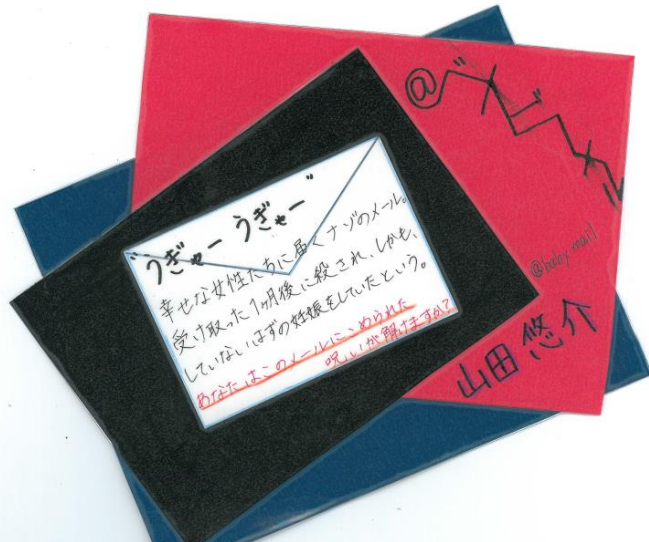 @ベイビーメール
@baby mail
山田悠介
"うぎゃー うぎゃー"
幸せな女性たちに届くナゾのメール。
受け取った1ヶ月後に殺され、しかも、
していないはずの妊娠をしていたという。
あなたはこのメールにこめられた
呪いが解けますか?